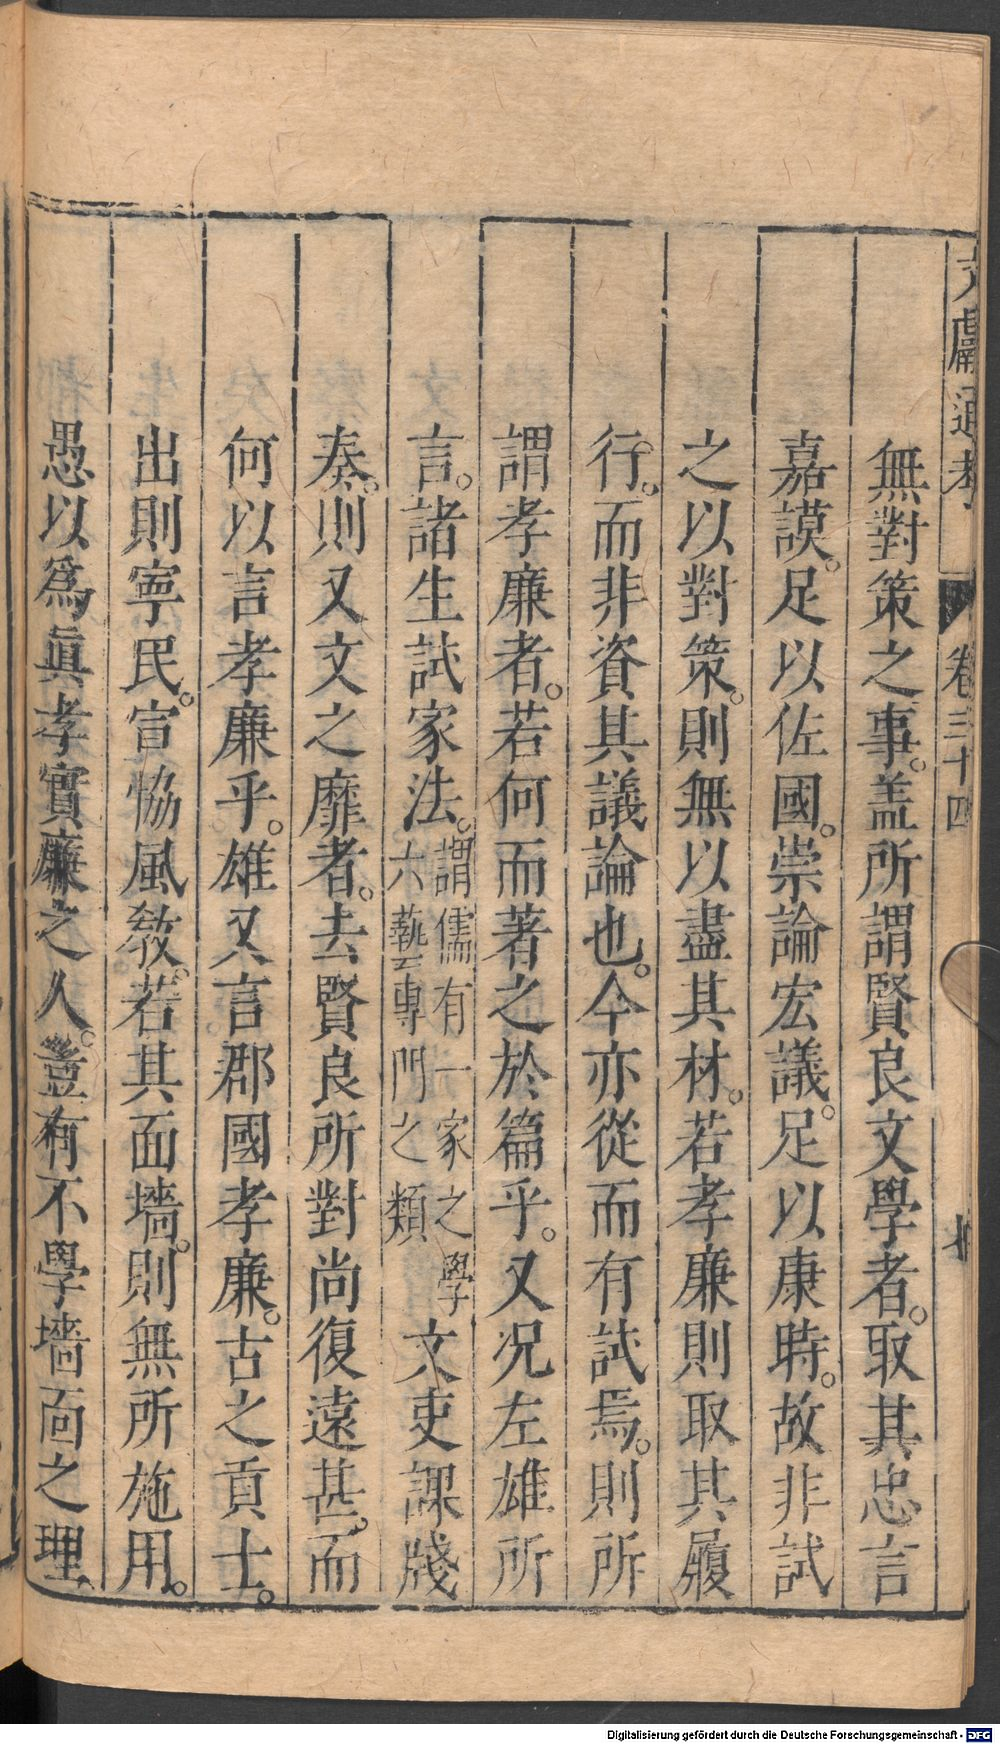 文獻通考 卷三十四
無對策之事。盖所謂賢良文學者。取其忠言
嘉謨。足以佐國。崇論宏議。足以康時。故非試
之以對策。則無以盡其材。若孝廉則取其履
行。而非資其議論也。今亦從而有試焉。則所
謂孝廉者。若何而著之於篇乎。又况左雄所
言。諸生試家法。謂儒有一家之學六藝專門之類文吏課牋
奏。則又文之靡者。去賢良所對尚復遠甚。而
何以言孝廉乎。雄又言郡國孝廉。古之貢士。
出則寧民。宣協風敎。若其面墻。則無所施用。
愚以爲眞孝實廉之人。豈有不學墻面之理
Digitalisierung gefördert durch die Deutsche Forschungsgemeinschaft - DFG